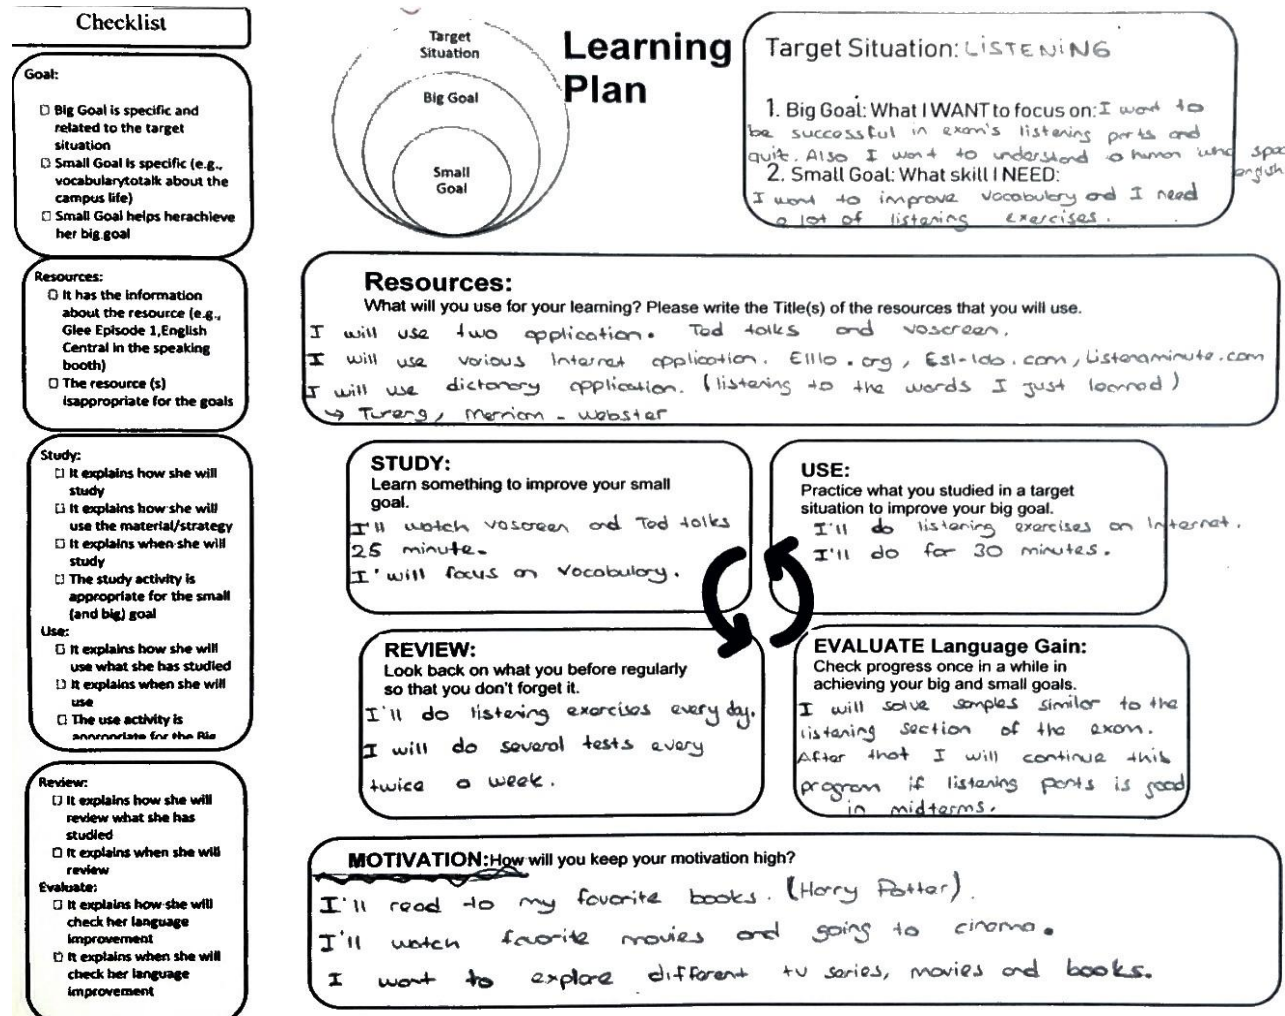 Checklist
Goal:
☐ Big Goal is specific and
related to the target
situation
☐ Small Goal is specific (e.g.,
vocabularytotalk about the
campus life)
☐ Small Goal helps herachieve
her big goal
Resources:
☐ It has the information
about the resource (e.g.,
Glee Episode 1,English
Central in the speaking
booth)
☐ The resource (s)
isappropriate for the goals
Study:
☐ It explains how she will
study
☐ It explains how she will
use the material/strategy
☐ It explains when she will
study
☐ The study activity is
appropriate for the small
(and big) goal
Use:
☐ It explains how she will
use what she has studied
☐ It explains when she will
use
☐ The use activity is
appropriate for the Big
Review:
☐ It explains how she will
review what she has
studied
☐ It explains when she will
review
Evaluate:
☐ It explains how she will
check her language
improvement
☐ It explains when she will
check her language
improvement
Target
Situation
Big Goal
Small
Goal
Learning
Plan
Target Situation: LISTENING
1. Big Goal: What I WANT to focus on: I want to
be successful in exam's listening parts and
quit. Also I want to understand a human who spea
english
2. Small Goal: What skill I NEED:
I want to improve vocabulary and I need
a lot of listening exercises.
Resources:
What will you use for your learning? Please write the Title(s) of the resources that you will use.
I will use two application. Ted talks and voscreen.
I will use various Internet application. Elllo.org, Esl-lab.com, Listenaminute.com
I will use dictonary application. (listening to the words I just learned)
↳ Tureng, Merriam - webster
STUDY:
Learn something to improve your small
goal.
I'll watch voscreen and Ted talks
25 minute.
I'will focus on vocabulary.
USE:
Practice what you studied in a target
situation to improve your big goal.
I'll do listening exercises on Internet.
I'll do for 30 minutes.
REVIEW:
Look back on what you before regularly
so that you don't forget it.
I'll do listening exercises every day.
I will do several tests every
twice a week.
EVALUATE Language Gain:
Check progress once in a while in
achieving your big and small goals.
I will solve samples similar to the
listening section of the exam.
After that I will continue this
program if listening parts is good
in midterms.
MOTIVATION:How will you keep your motivation high?
I'll read to my favorite books. (Harry Potter).
I'll watch favorite movies and going to cinema.
I want to explore different tv series, movies and books.